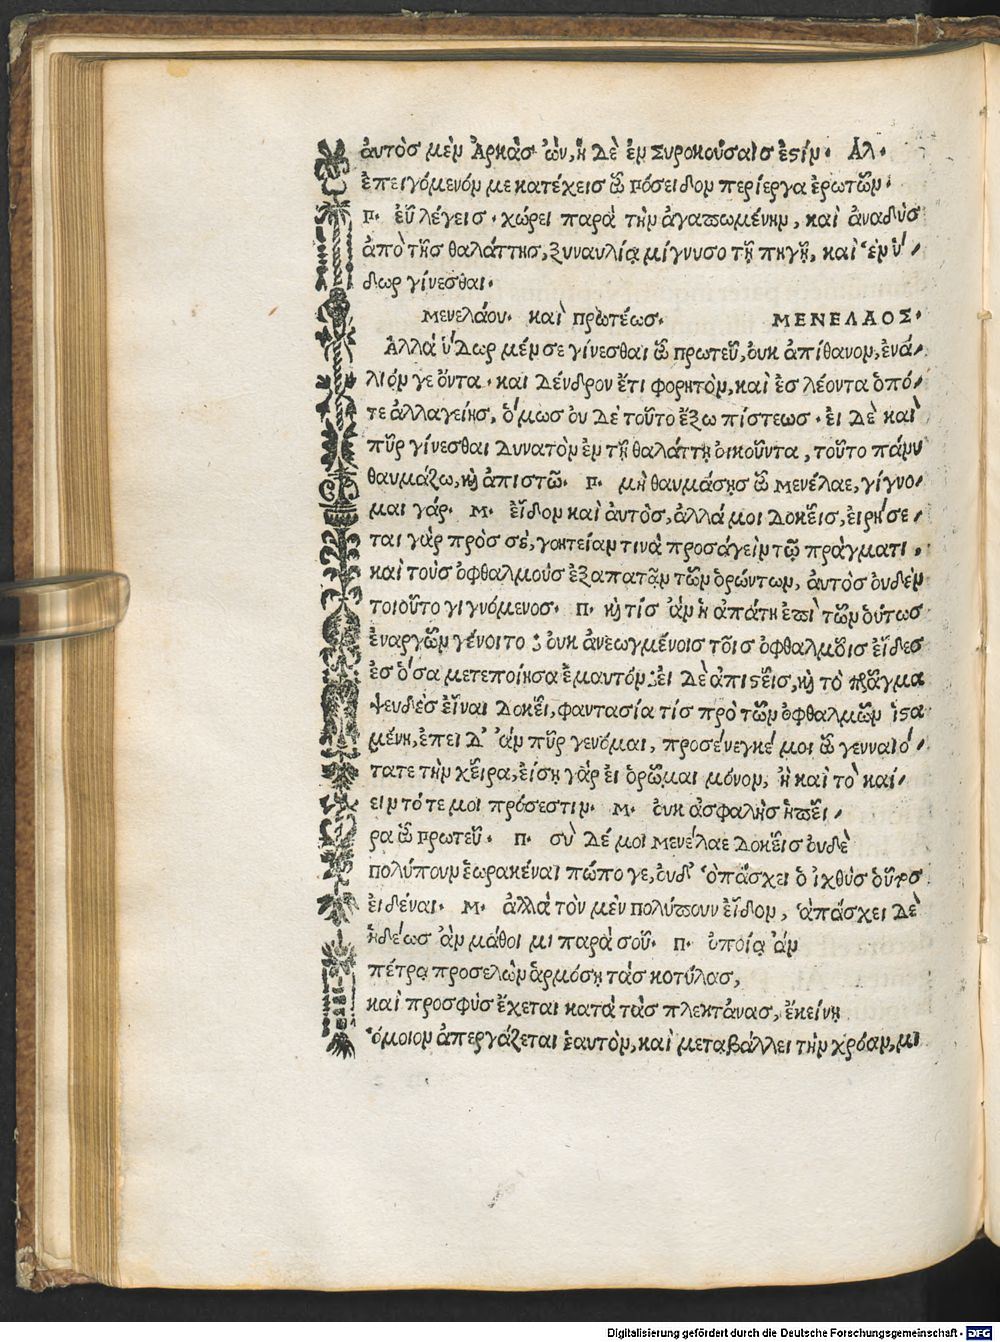 ἀυτὸς μὲν Ἀρκὰς ὢν, ἡ δὲ ἐν Συροκούσαις ἐςίν. Ἀλ.
ἐπειγόμενόν με κατέχεις ὦ πόσειδον περίεργα ἐρωτῶν.
Π. εὖ λέγεις. χώρει παρὰ τὴν ἀγαπωμένην, καὶ ἀναδὺς
ἀπὸ τῆς θαλάττης, ξυναυλίᾳ μίγνυσο τῇ πηγῇ, καὶ ἓν ὕ/
δωρ γίνεσθαι.
Μενελάου. καὶ πρωτέως. ΜΕΝΕΛΑΟΣ.
Ἀλλὰ ὕδωρ μέν σε γίνεσθαι ὦ πρωτεῦ, ὀυκ ἀπίθανον, ἐνά/
λιόν γε ὄντα. καὶ δένδρον ἔτι φορητὸν, καὶ ἐς λέοντα ὁπό/
τε ἀλλαγείης, ὅμως ὀυδὲ τοῦτο ἔξω πίστεως. ἐι δὲ καὶ
πῦρ γίνεσθαι δυνατὸν ἐν τῇ θαλάττῃ ὀικοῦντα, τοῦτο πάνυ
θαυμάζω, κὴ ἀπιστῶ. Π. μὴ θαυμάσης ὦ Μενέλαε, γίγνο/
μαι γάρ. Μ. εἶδον καὶ ἀυτὸς, ἀλλά μοι δοκεῖς, ἐιρήσε/
ται γὰρ πρὸς σὲ, γοητείαν τινὰ προσάγειν τῷ πράγματι,
καὶ τοὺς ὀφθαλμοὺς ἐξαπατᾷν τῶν ὁρώντων, ἀυτὸς ὀυδὲν
τοιοῦτο γιγνόμενος. Π. κὴ τίς ἂν ἡ ἀπάτη ἐπὶ τῶν ὅυτως
ἐναργῶν γένοιτο; ὀυκ ἀνεωγμένοις τοῖς ὀφθαλμοῖς εἶδες
ἐς ὅσα μετεποίησα ἐμαυτόν; ἐι δὲ ἀπιςεῖς, κὴ τὸ πρᾶγμα
ψευδὲς εἶναι δοκεῖ, φαντασία τίς πρὸ τῶν ὀφθαλμῶν ἱςα
μένη, ἐπειδ' ἂν πῦρ γενόμαι, προσένεγκέ μοι ὦ γενναιό/
τατε τὴν χεῖρα, ἐίσῃ γὰρ ἐι ὁρῶμαι μόνον, ἢ καὶ τὸ καί/
ειν τότε μοι πρόσεστιν. Μ. ὀυκ ἀσφαλὴς ἡ πεῖ/
ρα ὦ πρωτεῦ. Π. σὺ δέ μοι Μενέλαε δοκεῖς ὀυδὲ
πολύπουν ἑωρακέναι πώπο γε, ὀυδ' ὃ πάσχει ὁ ἰχθὺς οὗτος
ἐιδέναι. Μ. ἀλλὰ τὸν μὲν πολύπουν εἶδον, ἃ πάσχει δὲ
ἡδέως ἂν μάθοιμι παρὰ σοῦ. Π. ὁποίᾳ ἂν
πέτρᾳ προσελὼν ἁρμόσῃ τὰς κοτύλας,
καὶ προσφὺς ἔχεται κατὰ τὰς πλεκτάνας, ἐκείνῃ
ὅμοιον ἀπεργάζεται ἑαυτὸν, καὶ μεταβάλλει τὴν χρόαν, μι
Digitalisierung gefördert durch die Deutsche Forschungsgemeinschaft - DFG